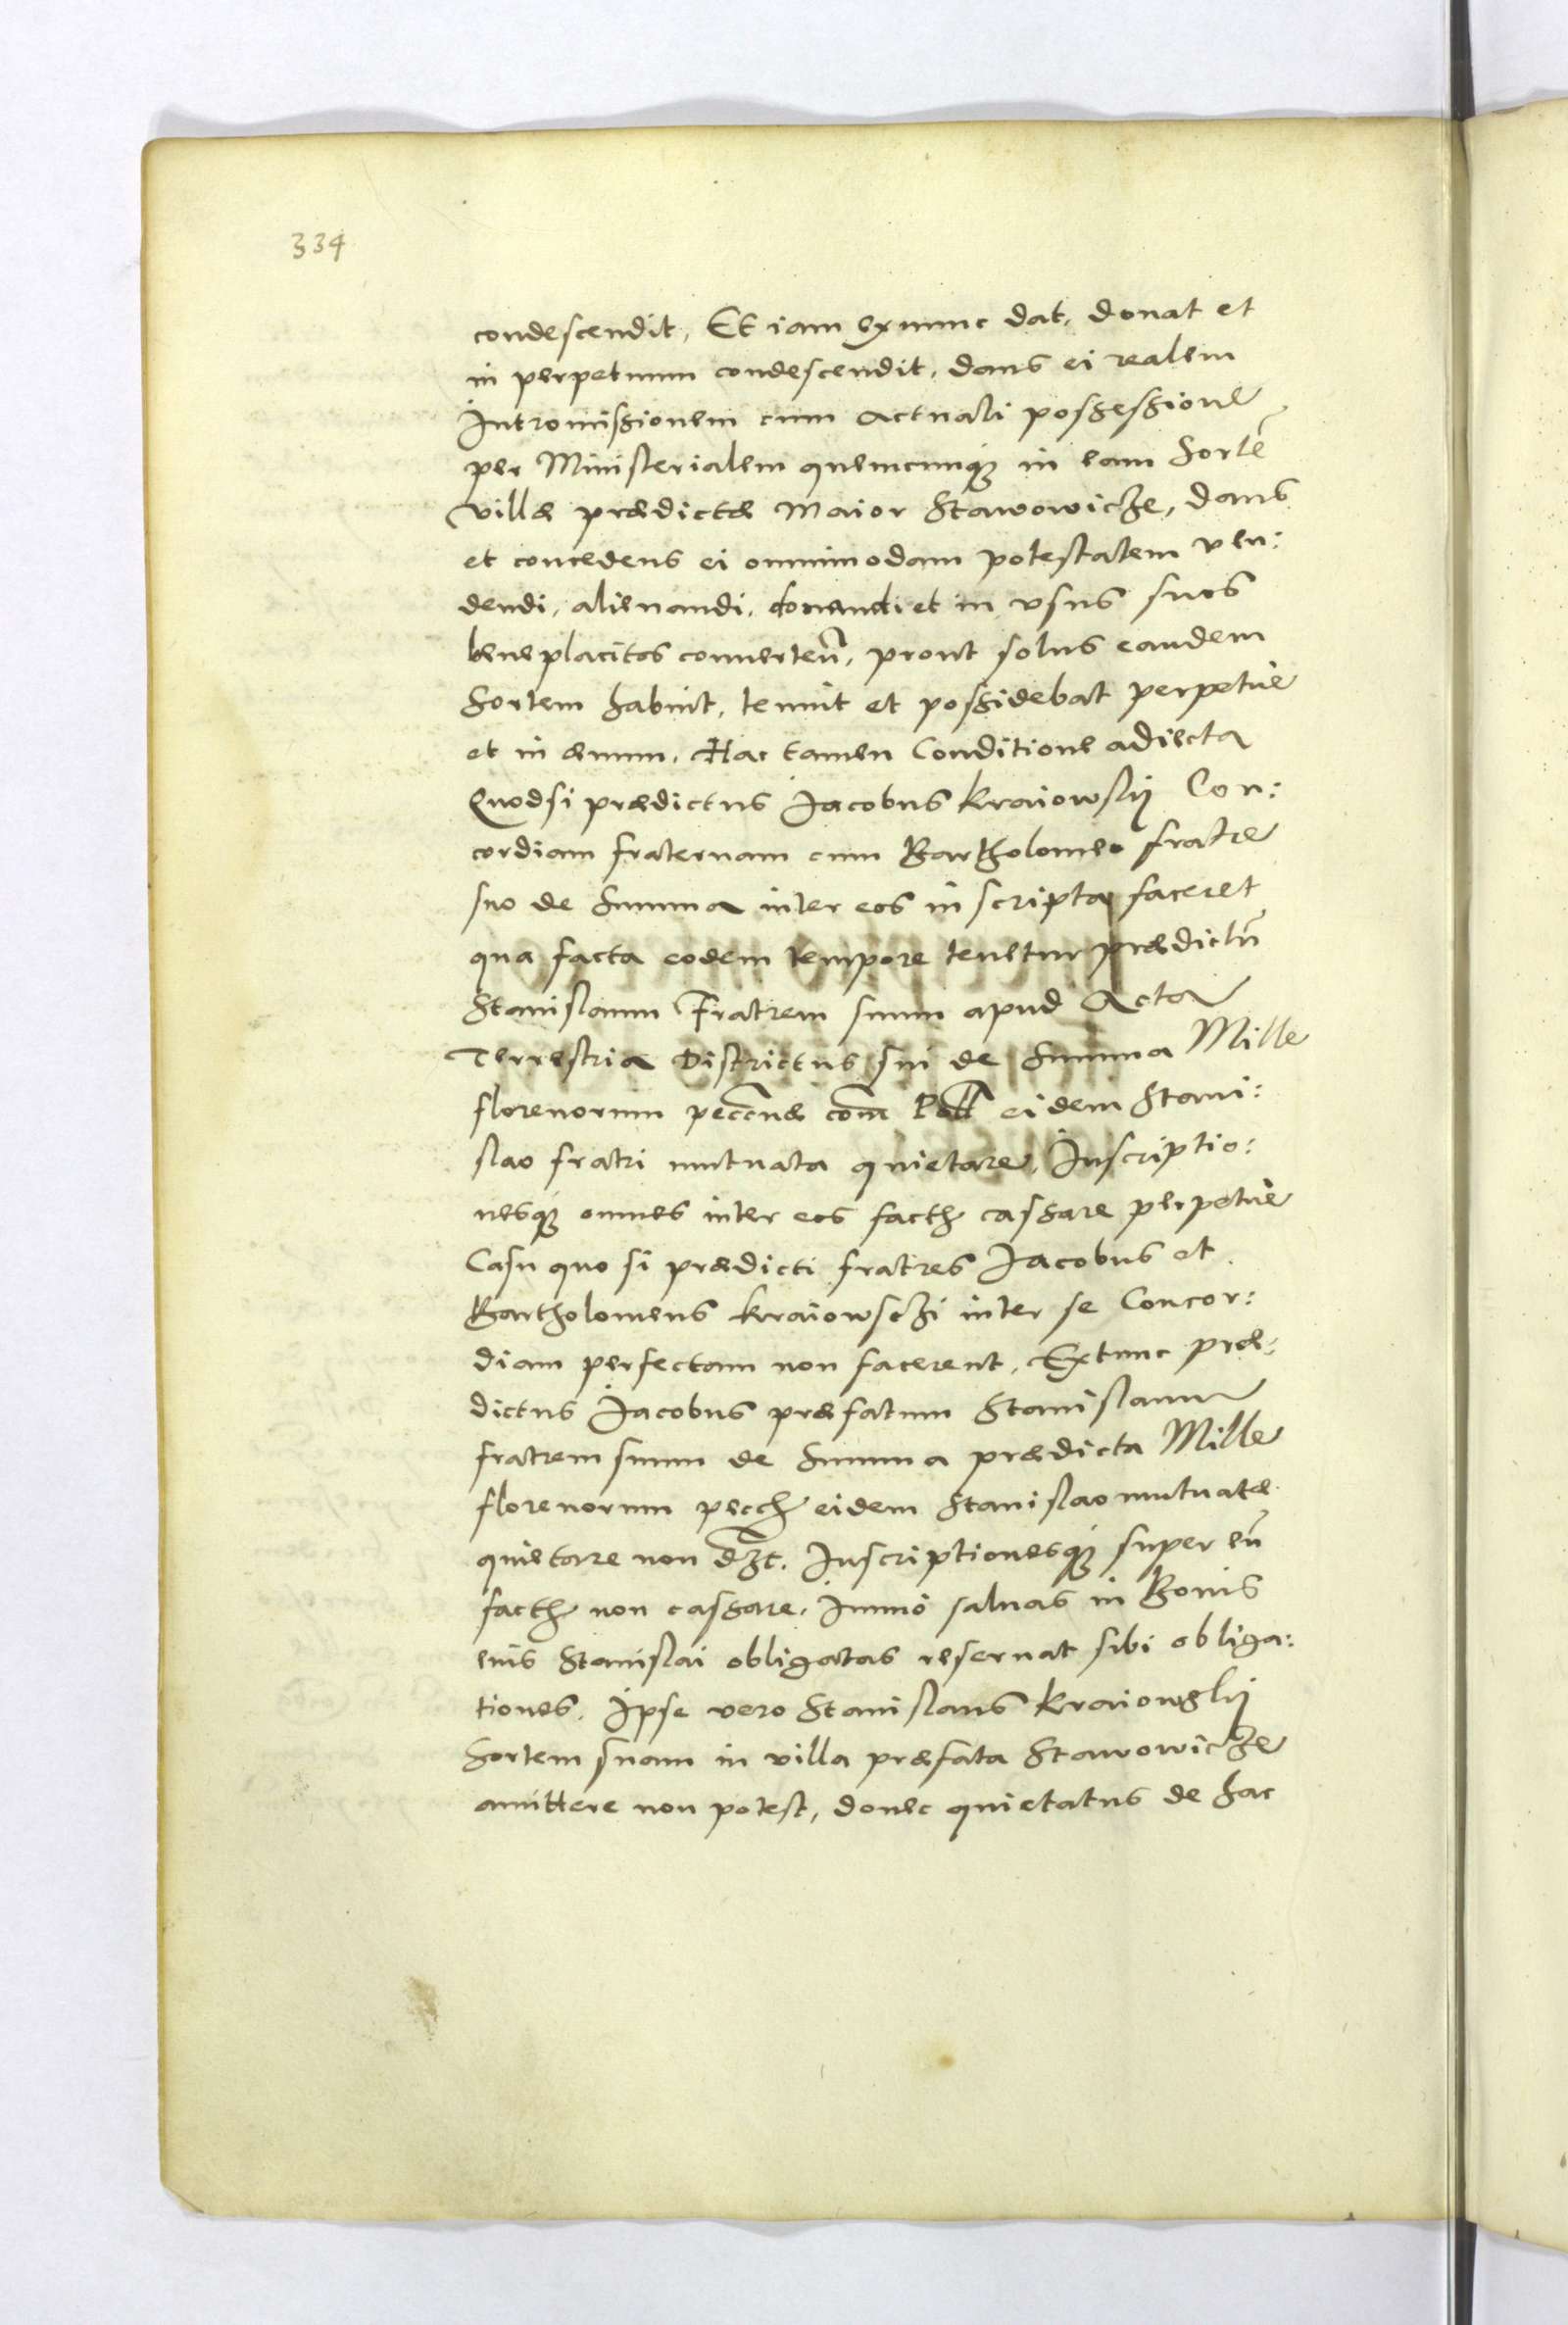 334
condescendit, Et iam exnunc dat, donat et
in perpetuum condescendit, dans ei realem
Intromissionem cum actuali possessione
per Ministerialem quemcunque in eam Sortē
villæ prædictæ Maior Stawowicze, dans
et concedens ei omnimodam potestatem ven:
dendi, alienandi, donandi et in vsus suos
beneplacitos conuerteñ, prout solus eandem
Sortem habuit, tenuit et possidebat perpetue
et in æuum. Hac tamen Conditione adiecta
Quodsi prædictus Jacobus Kraiowsky Con:
cordiam fraternam cum Bartholomeo fratre
suo de Summa inter eos inscripta faceret
qua facta eodem tempore tenetur prædictū
Stanislaum Fratrem suum apud Acta
Terrestria Districtus sui de Summa Mille
florenorum peccuæ com̄ eidem Stani:
slao fratri mutuata quietare, Inscriptio:
nesque omnes inter eos facth cassare perpetue
Casu quo si prædicti fratres Jacobus et
Bartholomeus Kraiowsczi inter se Concor:
diam perfectam non facerent, Extunc præ:
dictus Jacobus præfatum Stanislaum
fratrem suum de Summa prædicta Mille
florenorum pecch eidem Stanislao mutuatæ
quietare non dz̄t. Inscriptionesque super eū
facth non cassare, Immo saluas in Bonis
eius Stanislai obligatas reseruat sibi obliga:
tiones. Ipse vero Stanislaus Kraiowsky
Sortem suam in villa præfata Stawowicze
amittere non potest, donec quietatus de hac